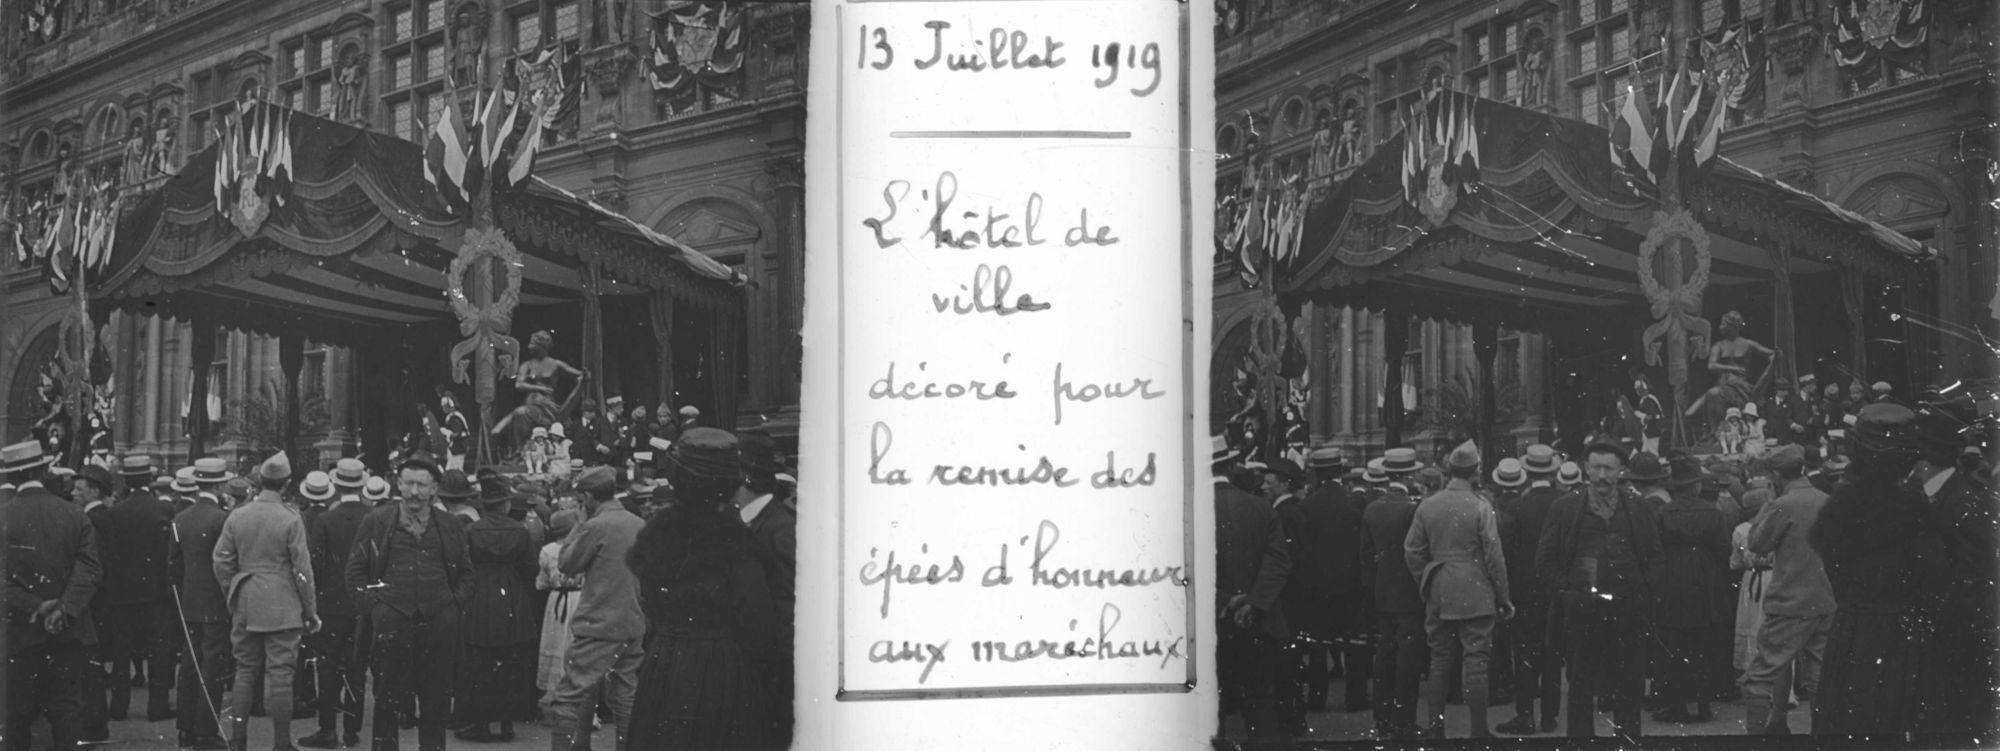 13 Juillet 1919
L'hôtel de
ville
décoré pour
la remise des
épées d'honneur
aux maréchaux
RF